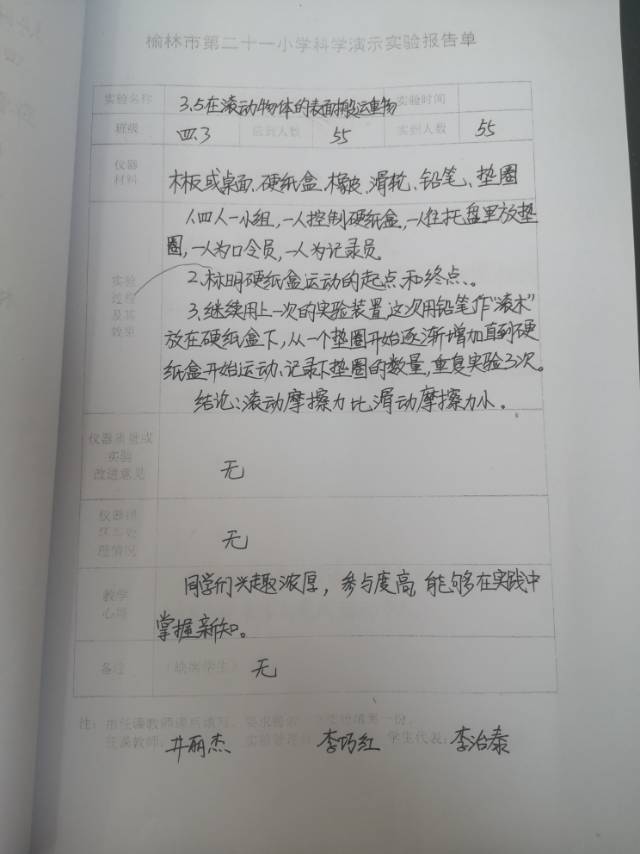 榆林市第二十一小学科学演示实验报告单
实验名称 3.5在滚动物体的表面搬运重物 实验时间
班级 四.3 应到人数 55 实到人数 55
仪器
材料
木板或桌面、硬纸盒、橡皮、滑轮、铅笔、垫圈
实验
过程
及其
效果
1.四人一小组,一人控制硬纸盒,一人往托盘里放垫
圈,一人为口令员,一人为记录员。
2.标明硬纸盒运动的起点和终点、。
3.继续用上一次的实验装置,这次用铅笔作“滚木”
放在硬纸盒下,从一个垫圈开始逐渐增加直到硬
纸盒开始运动、记录下垫圈的数量,重复实验3次。
结论:滚动摩擦力比滑动摩擦力小。
仪器质量或
实验
改进意见
无
仪器损
理情况
无
教学
心得
同学们兴趣浓厚,参与度高,能够在实践中
掌握新知。
备注 (缺席学生) 无
注:由任课教师课后填写,
任课教师: 井丽杰 李巧红 学生代表: 李治泰